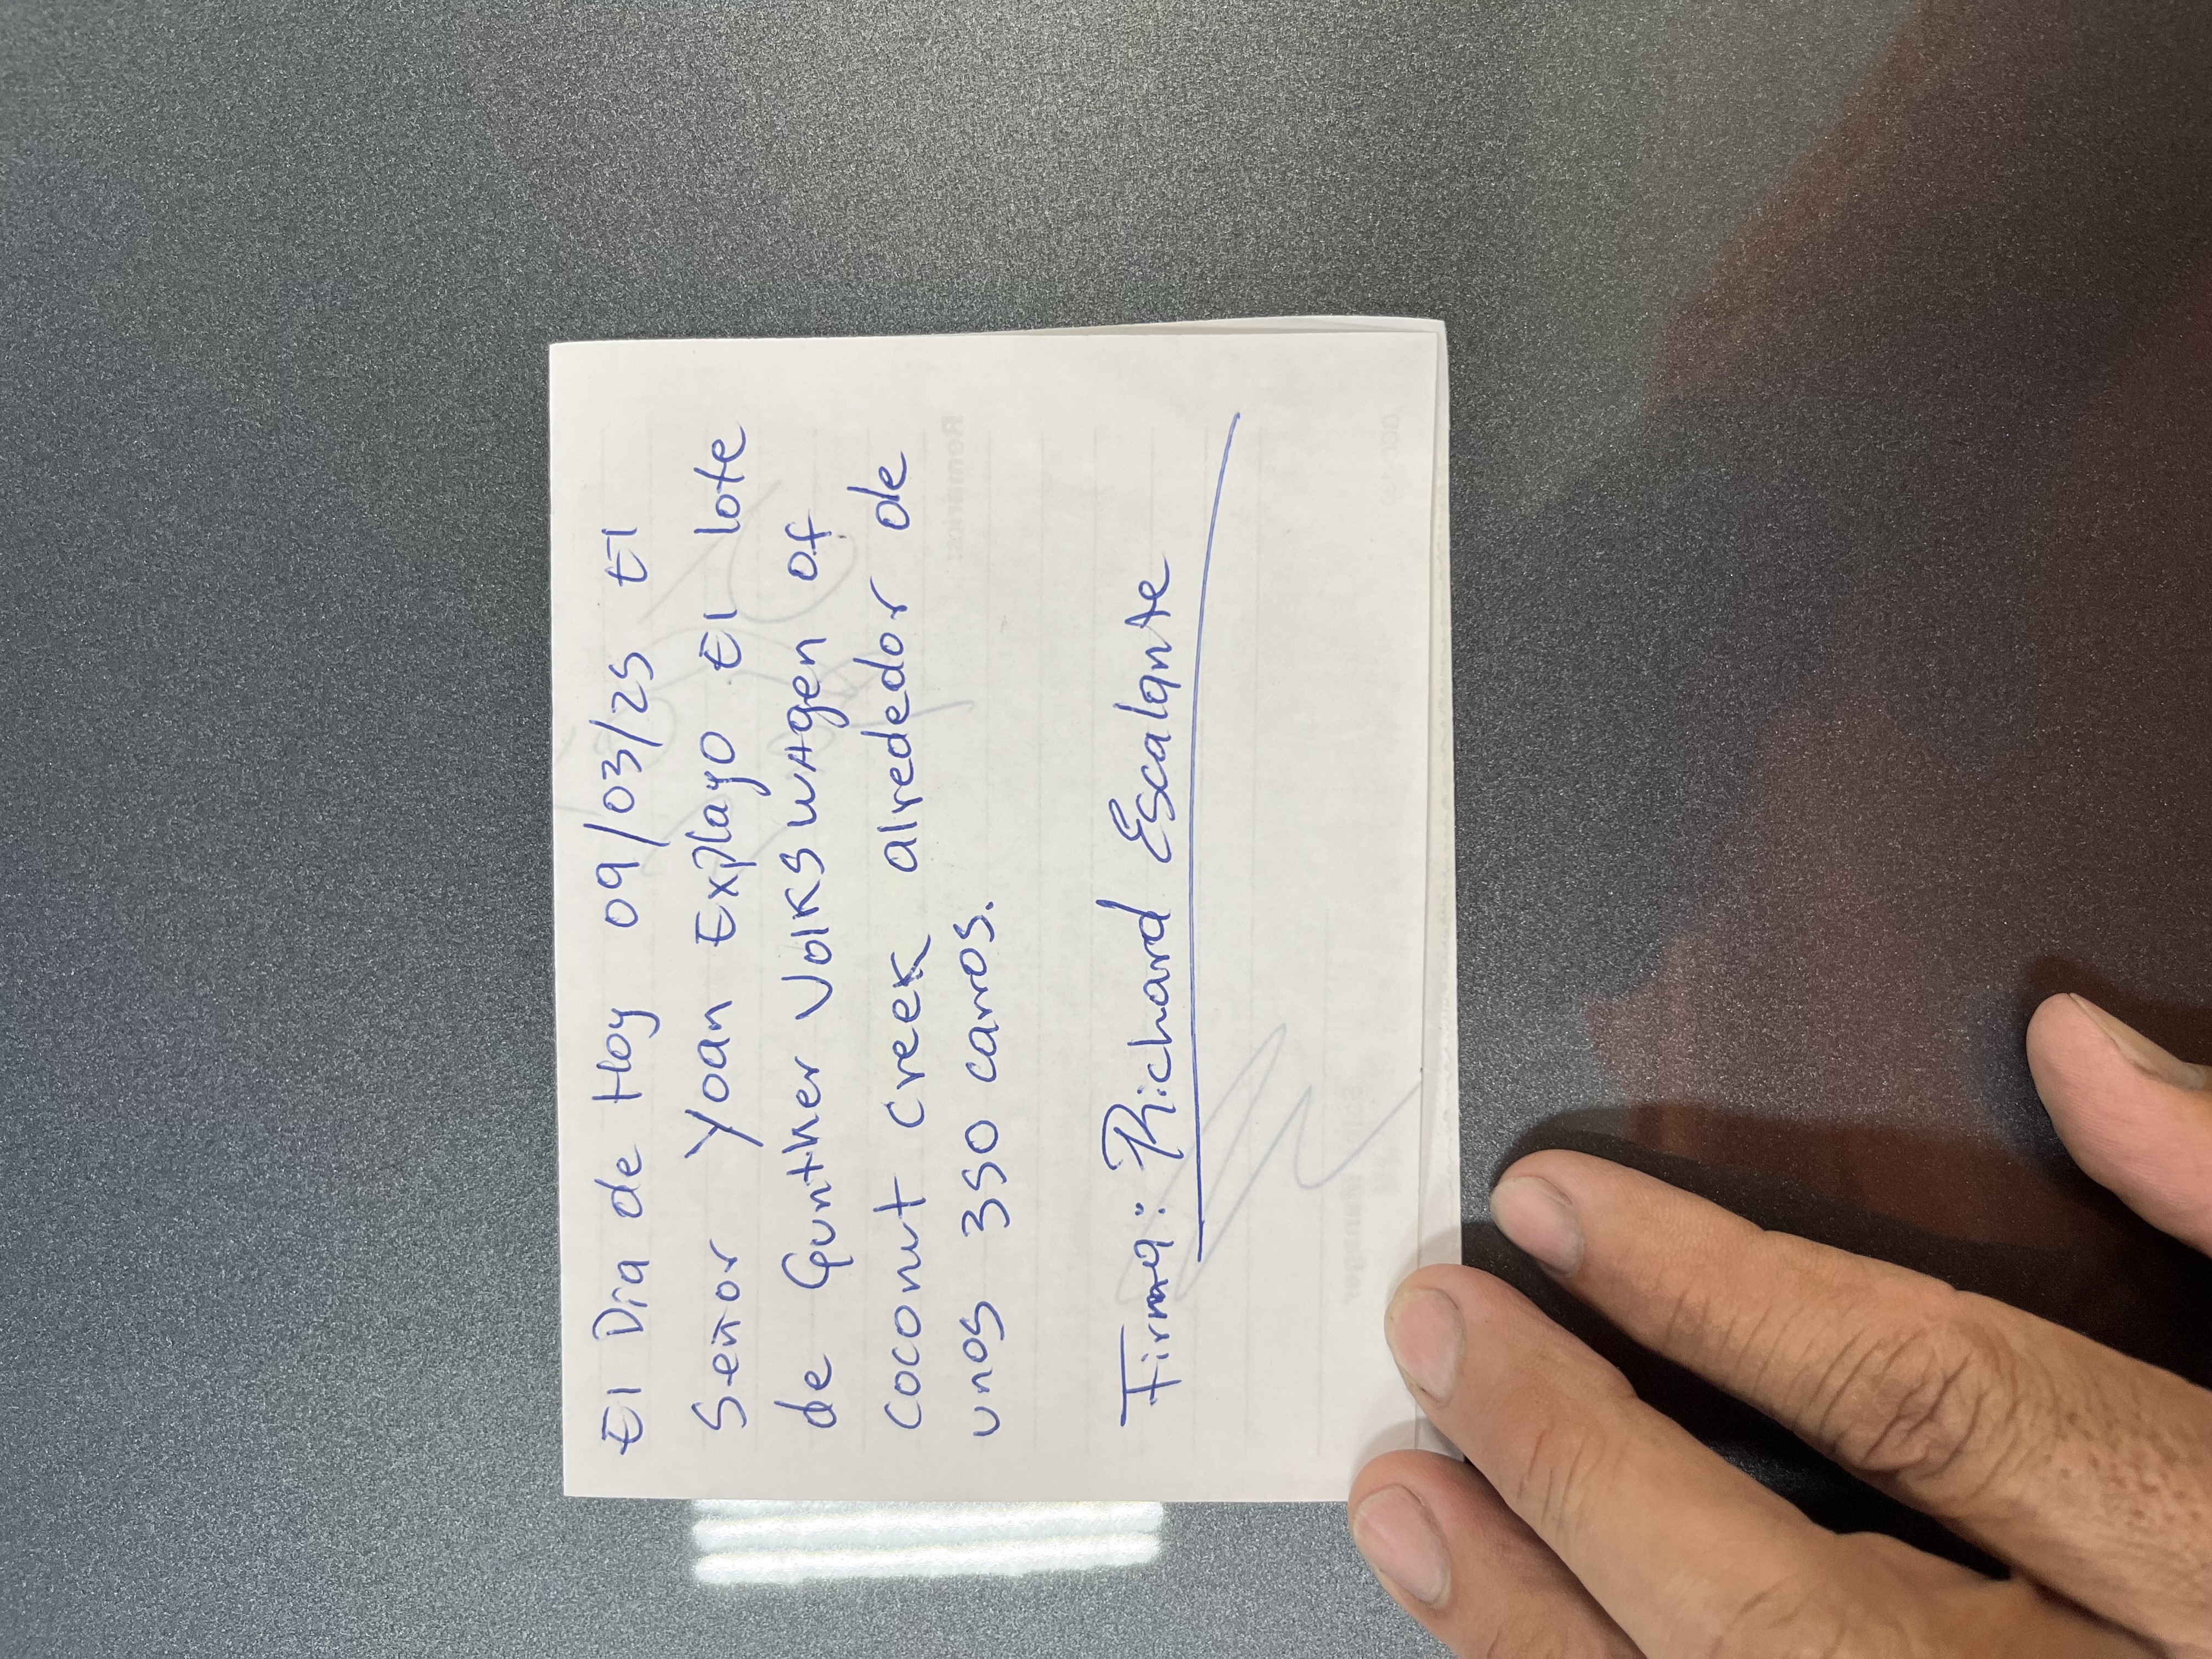 El Dia de Hoy 09/03/25 El
Señor Yoan Explayo El lote
de Gunther Volkswagen of
Coconut Creek alrededor de
unos 350 carros.
Firma: Richard Escalante